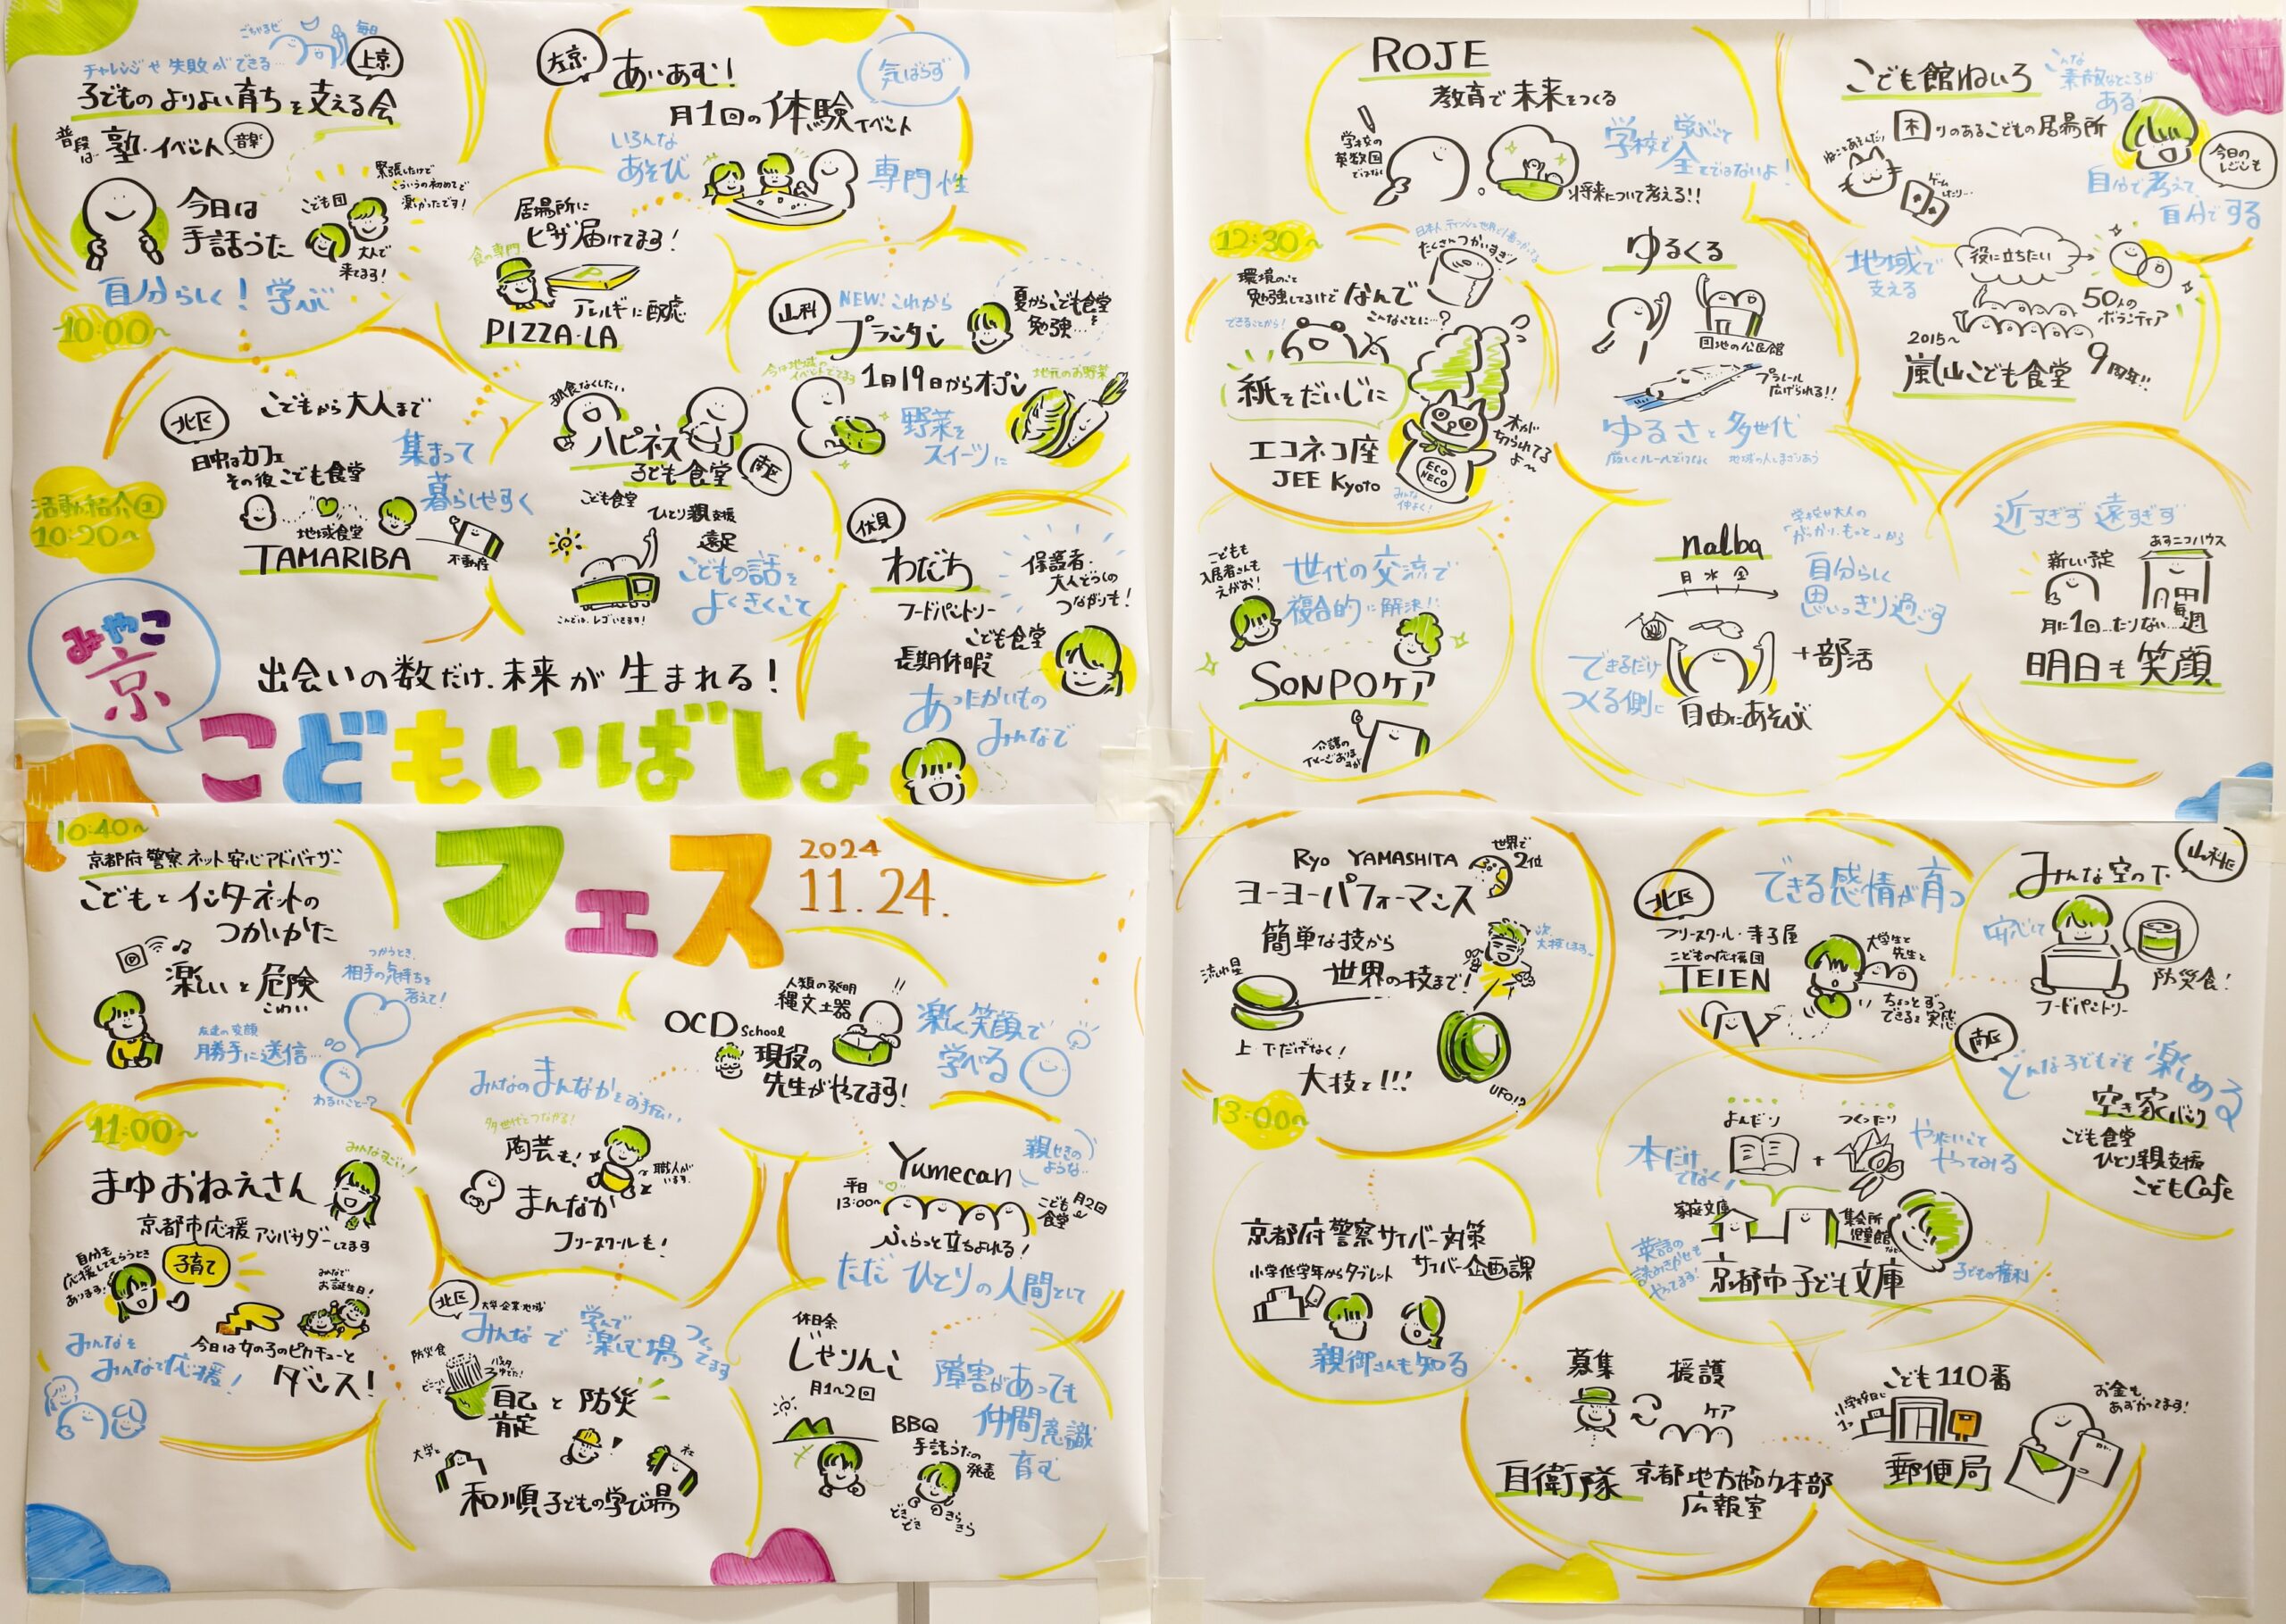 ごちゃまぜ
毎日
チャレンジや失敗ができる…
上京
子どものよりよい育ちを支える会
普段は…
塾・イベント
音楽
今日は
手話うた
こども団
緊張したけど
こういうの初めてで
楽しかったです!
大人で
来てます!
自分らしく!学ぶ
10:00~
左京
あいあむ!
気ばらず
月1回の体験イベント
いろんな
あそび
専門性
居場所に
ピザ届けてます!
食の専門
アレルギーに配慮
PIZZA-LA
山科
NEW!これから
プランタン
夏からこども食堂を
勉強…
今は地域の
イベントででてます
1月19日からオープン
地元のお野菜
野菜を
スイーツに
北区
こどもから大人まで
日中はカフェ
その後こども食堂
集まって
暮らしやすく
地域食堂
不動産
TAMARIBA
活動紹介①
10:20~
孤食なくしたい
ハピネス
子ども食堂
南区
こども食堂
ひとり親支援
遠足
こどもの話を
よくきくこと
伏見
わだち
フードパントリー
こども食堂
長期休暇
保護者・
大人どうしの
つながりも!
あったかいもの
みんなで
みやこ
京
出会いの数だけ、未来が生まれる!
こどもいばしょ
フェス
2024
11.24.
10:40~
京都府警察ネット安心アドバイザー
こどもとインターネットの
つかいかた
楽しいと危険
こわい
つかうとき、
相手の気持ちを
考えて!
友達の変顔
勝手に送信…
わるいこと…?
11:00~
みんなすごい!
まゆおねえさん
京都市応援アンバサダーしてます
自分も
応援してもらうとき
あります!
子育て
みんなで
お誕生日!
みんなを
みんなで応援!
今日は女の子のピカチューと
ダンス!
人類の発明
縄文土器
OCD School
現役の
先生がやってます!
楽しく笑顔で
学べる
みんなのまんなかをお手伝い
多世代とつながる!
陶芸も!
職人が
います。
まんなか
フリースクールも!
Yumecan
親せきの
ような…
平日
13:00~
こども
食堂
月2回
ふらっと立ちよれる!
ただひとりの人間として
北区
大学 企業 地域
みんなで学んで
楽しむ場つくってます
防災食
自己
肯定
と防災
大学と
社
和順子どもの学び場
休日余
じゃりんこ
月1~2回
BBQ
手話うたの
発表
どきどき
きらきら
障害があっても
仲間意識
育む
ROJE
教育で未来をつくる
学校の
英数国
ではなく
学校で学ぶこと
全てではないよ!
将来について考える!!
こども館ねいろ
こんな
素敵なところが
ある!
困りのあるこどもの居場所
ねことあそんだり
ゲーム
したり…
今日の
しごとも
自分で考えて
自分でする
12:30~
環境のこと
勉強してるけど
なんで
こんなことに…?
たくさんつかいすぎ!
できることから!
紙をだいじに
エコネコ座
JEE Kyoto
ECO
NECO
木が
切られてる
よ~
みんな
仲よく!
ゆるくる
団地の公民館
プラレール
広げられる!!
ゆるさと多世代
厳しくルールではなく
地域の人しまざりあう
地域で
支える
役に立ちたい
50人の
ボランティア
2015~
嵐山こども食堂
9周年!!
こどもも
入居者さんも
えがお!
世代の交流で
複合的に解決!!
SOMPOケア
介護の
イメージあります
が
学校や大人の
「がっかり、もっと」から
nalba
月 水 金
自分らしく
思いっきり過ごす
+部活
できるだけ
つくる側に
自由にあそぶ
近すぎず遠すぎず
新しい予定
あすニコハウス
月に1回…たりない…
毎週
明日も笑顔
Ryo YAMASHITA
世界で
2位
ヨーヨーパフォーマンス
簡単な技から
世界の技まで!
流れ星
次、
大技します~
上・下だけなく!
大技と!!!
UFO!?
13:00~
北区
できる感情が育つ
フリースクール・寺子屋
こどもの応援団
TEIEN
大学生と
先生と
ちょっとずつ
できると実感
みんな空の下
山科区
安心して
防災食!
フードパントリー
南区
どんな子どもでも楽しめる
空き家バック
こども食堂
ひとり親支援
こどもCafe
よんだり
つくったり
本だけ
でなく!
やりたいこと
やってみる
家庭文庫
集会所
児童館
など
英語の
読みきかせも
やってます!
子どもの権利
京都市子ども文庫
京都府警察サイバー対策
サイバー企画課
小学低学年からタブレット
親御さんも知る
募集
援護
ケア
自衛隊
京都地方協力本部
広報室
こども110番
小学校区に
1つ
お金も
あずかってます!
郵便局